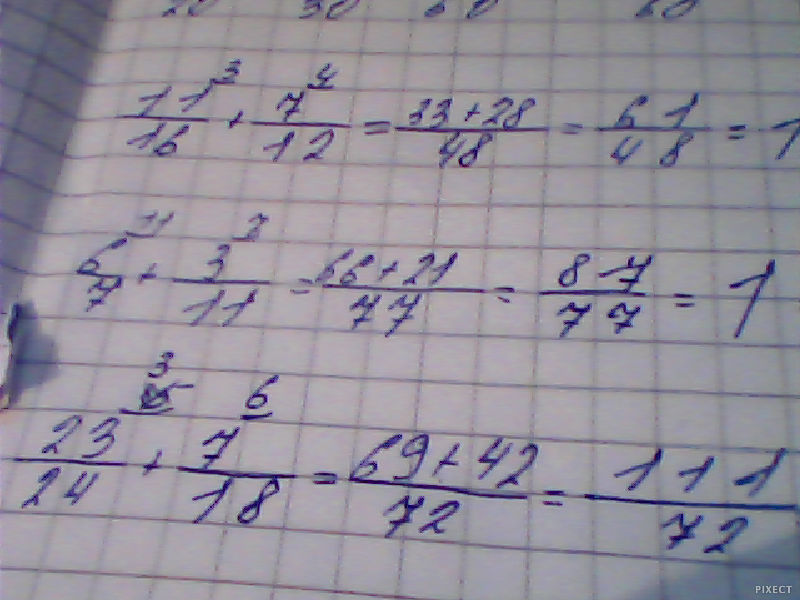 11/16 ³ + 7/12 ⁴ = 33+28/48 = 61/48 = 1
6/7 ¹¹ + 3/11 ⁷ = 66+21/77 = 87/77 = 1
23/24 ³ + 7/18 ⁶ = 69+42/72 = 111/72
PIXECT